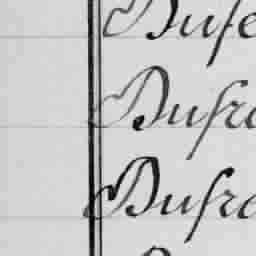 Dufe
Dufre
Dufre